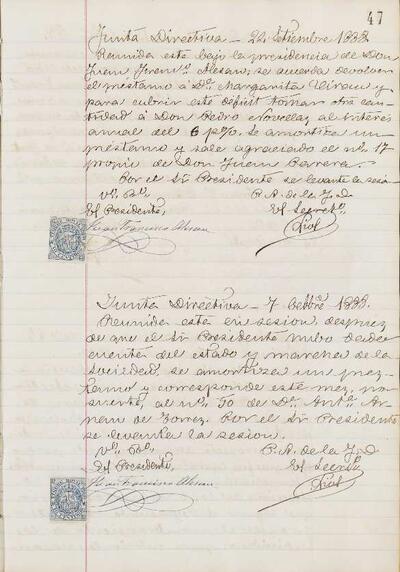 47
Junta Directiva - 24 Setiembre 1888
Reunida esta bajo la presidencia de Don
Juan Franco. Alesan; se acuerda devolver
el préstamo á Da. Margarita
para cubrir este déficit tomar otra can-
tidad á Don Pedro Novellas, al interés
anual del 6 p%. Se amortiza un
préstamo y sale agraciado el no. 17
propio de Don Juan Parera.
Por el Sr. Presidente se levanta la sesn.
Vo. Bo. P. A. de la J. D.
El Presidente, El Secreto.
Juan Francisco Alesan
Junta Directiva - 7 1888.
Reunida esta en sesion, despues
de que el Sr. Presidente hubo dado
cuenta del estado y marcha de la
Sociedad, se amortiza un pres-
tamo y corresponde este mes, por
suerte, al no. 50 de Da. Anta. Ar-
de Torrez. Por el Sr. Presidente
se levanta la sesion.
Vo. Bo. P. A. de la J. D.
El Presidente, El Secreto.
Juan Francisco Alesan